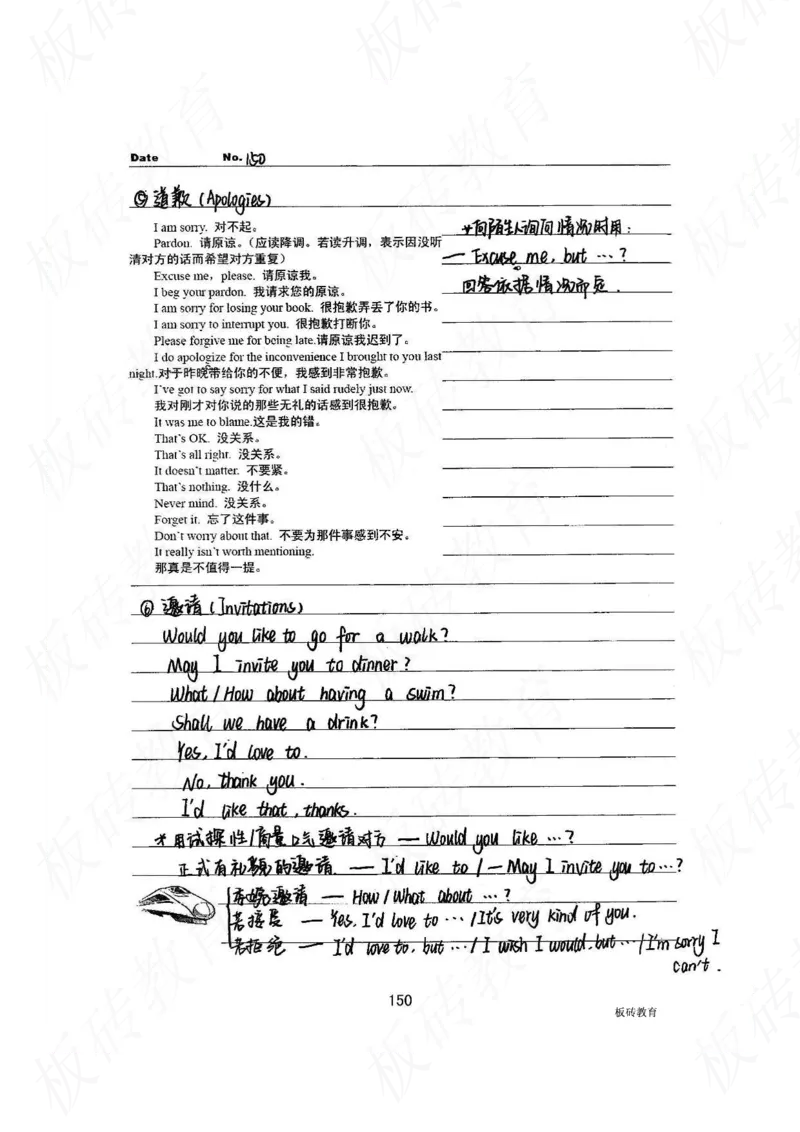 Date No. 150
⑤ 道歉 (Apologies)
I am sorry. 对不起。
Pardon. 请原谅。（应读降调。若读升调，表示因没听
清对方的话而希望对方重复）
Excuse me, please. 请原谅我。
I beg your pardon. 我请求您的原谅。
I am sorry for losing your book. 很抱歉弄丢了你的书。
I am sorry to interrupt you. 很抱歉打断你。
Please forgive me for being late.请原谅我迟到了。
I do apologize for the inconvenience I brought to you last
night.对于昨晚带给你的不便，我感到非常抱歉。
I've got to say sorry for what I said rudely just now.
我对刚才对你说的那些无礼的话感到很抱歉。
It was me to blame.这是我的错。
That's OK. 没关系。
That's all right. 没关系。
It doesn't matter. 不要紧。
That's nothing. 没什么。
Never mind. 没关系。
Forget it. 忘了这件事。
Don't worry about that. 不要为那件事感到不安。
It really isn't worth mentioning.
那真是不值得一提。
*向陌生人询问情况时用：
— Excuse me, but …?
回答依据情况而定.
⑥ 邀请 (Invitations)
Would you like to go for a walk?
May I invite you to dinner?
What / How about having a swim?
Shall we have a drink?
Yes, I'd love to.
No, thank you.
I'd like that, thanks.
*用试探性/商量口气邀请对方 — Would you like …?
正式有礼貌的邀请 — I'd like to / — May I invite you to …?
邀请 — How / What about …?
若接受 — Yes, I'd love to … / It's very kind of you.
若拒绝 — I'd love to, but … / I wish I would, but … / I'm sorry I
can't.
150
板砖教育